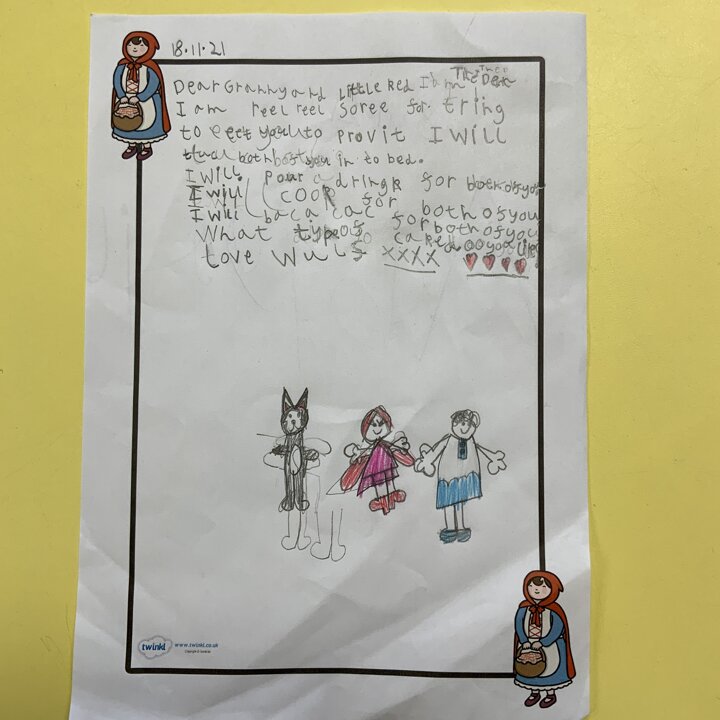 18.11.21
Dear Granny and Little Red I am
I am reel reel soree for tring
to eet you to provit I Will
both you in to bed.
I Will pour a dringk for both of you
I Will cook for both of you
I Will baca cac for both of you
What type of do you like
Love Wulf xxxx
twinkl www.twinkl.co.uk